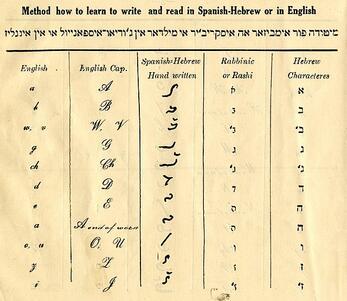 Method how to learn to write and read in Spanish-Hebrew or in English
מיטודה פור אימביזאר אה איסקריב'יר אי מילדאר אין ג'ודיאו־איספאנייול או אין אינגליז
English English Cap. Spanish-Hebrew Hand written Rabbinic or Rashi Hebrew Characteres
a A א א
b B ב ב
w, v W, V ב' ב'
g G ג ג
ch Ch ג' ג'
d D ד ד
e E ה ה
a A end of word ה ה
o, u O, U ו ו
z Z ז ז
j J ז' ז'